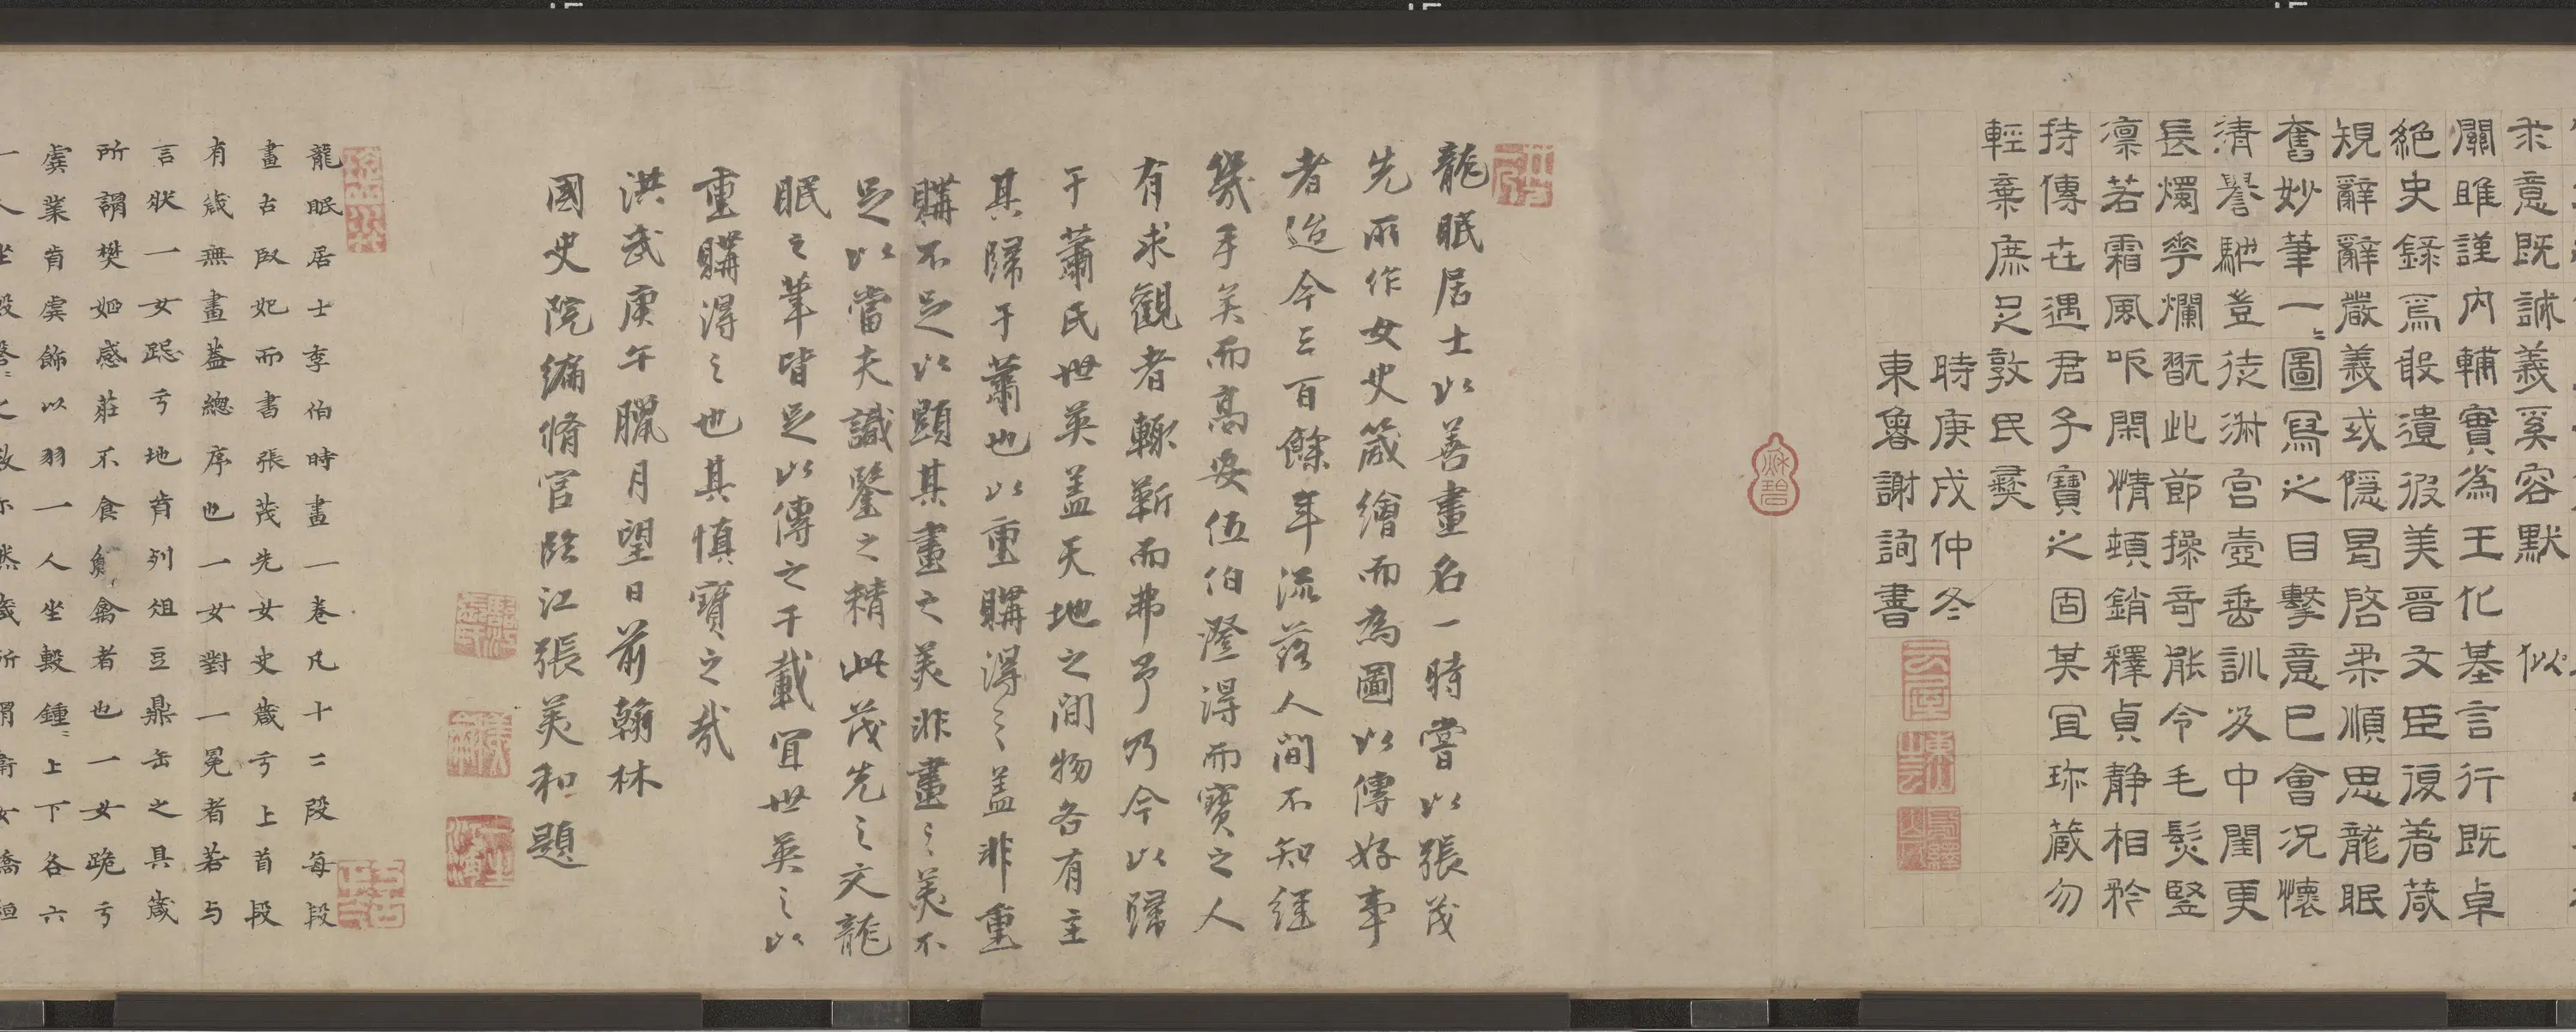 求意既誠義奚容默
關雎謹內輔實為王化基言行既卓
絕史錄焉敢遺彼美晉文臣復著葴
規辭辭嚴義或隱曷啓柔順思龍眠
奮妙筆一〻圖寫之目擊意已會況懷
清譽馳豈徒淋宮壼垂訓及中閨更
長燭花爛翫此節操奇能令毛髮竪
凛若霜風吹閑情頓銷釋貞靜相矜
持傳在遇君子寶之固其宜珎蔵勿
輕棄庶足敦民彝
時庚戌仲冬
東魯謝詢書
龍眠居士以善畫名一時嘗以張茂
先所作女史箴繪而為圖以傳好事
者迨今三百餘年流落人間不知經
幾手矣而高安伍伯澄得而寶之人
有求觀者輒靳而弗予乃今以歸
于蕭氏世英盖天地之間物各有主
其歸于蕭也以重購得之盖非重
購不足以顯其畫之美非畫之美不
足以當夫識鑒之精此茂先之文龍
眠之筆皆足以傳之千載宜世英之以
重購得之也其慎寶之哉
洪武庚午臘月望日前翰林
國史院編脩官臨江張美和題
龍眠居士李伯時畫一卷凡十二段每段
畫古后妃而書張茂先女史箴于上首段
有箴無畫蓋總序也一女對一冕者若与
言狀一女跽于地肯列俎豆鼎缶之具箴
所謂樊姬感莊不食鮮禽者也一女跪于
虡業肯虡飾以羽一人坐毄鍾〻上下各六